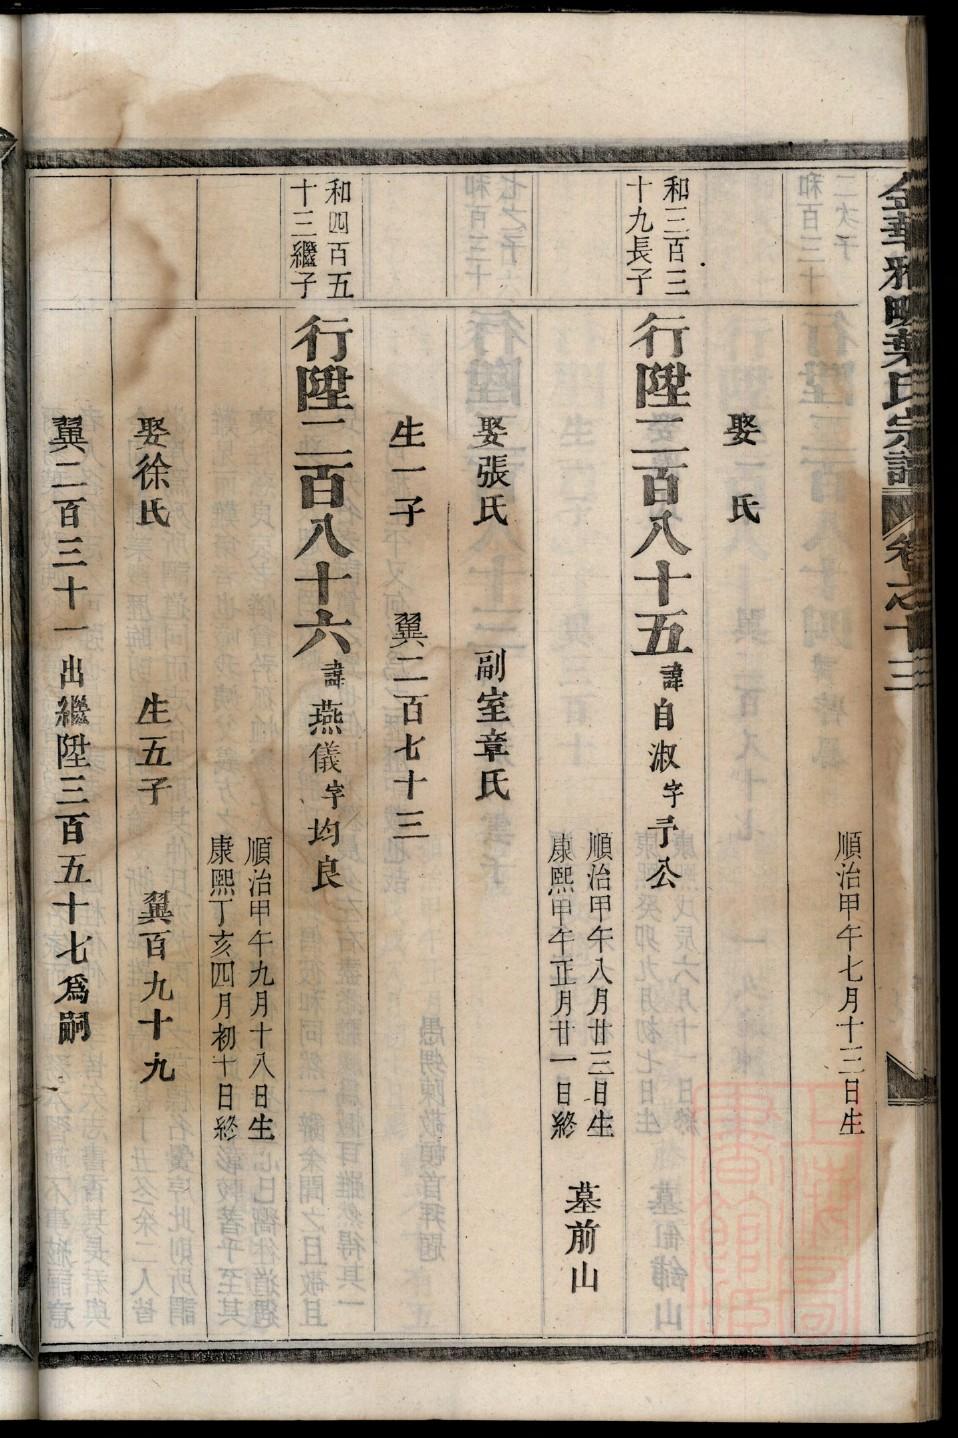 金華雅畈葉氏宗譜 卷之十三
順治甲午七月十三日生
娶 氏
和三百三
十九長子
行陞二百八十五 諱自淑字予公
順治甲午八月廿三日生
康熙甲午正月廿一日終
墓前山
娶張氏 副室章氏
生一子 翼二百七十三
和四百五
十三繼子
行陞二百八十六 諱燕儀字均良
順治甲午九月十八日生
康熙丁亥四月初十日終
娶徐氏 生五子 翼百九十九
翼二百三十一 出繼陞三百五十七爲嗣